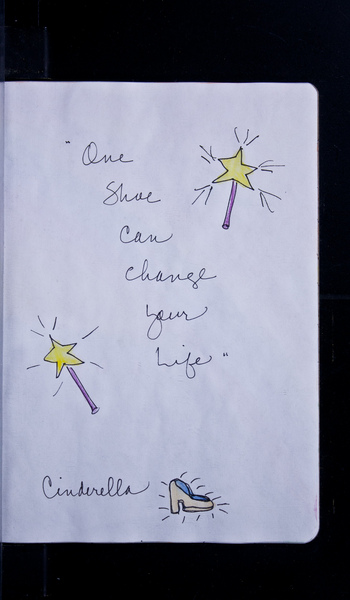 "One
Shoe
Can
change
your
Life"
Cinderella